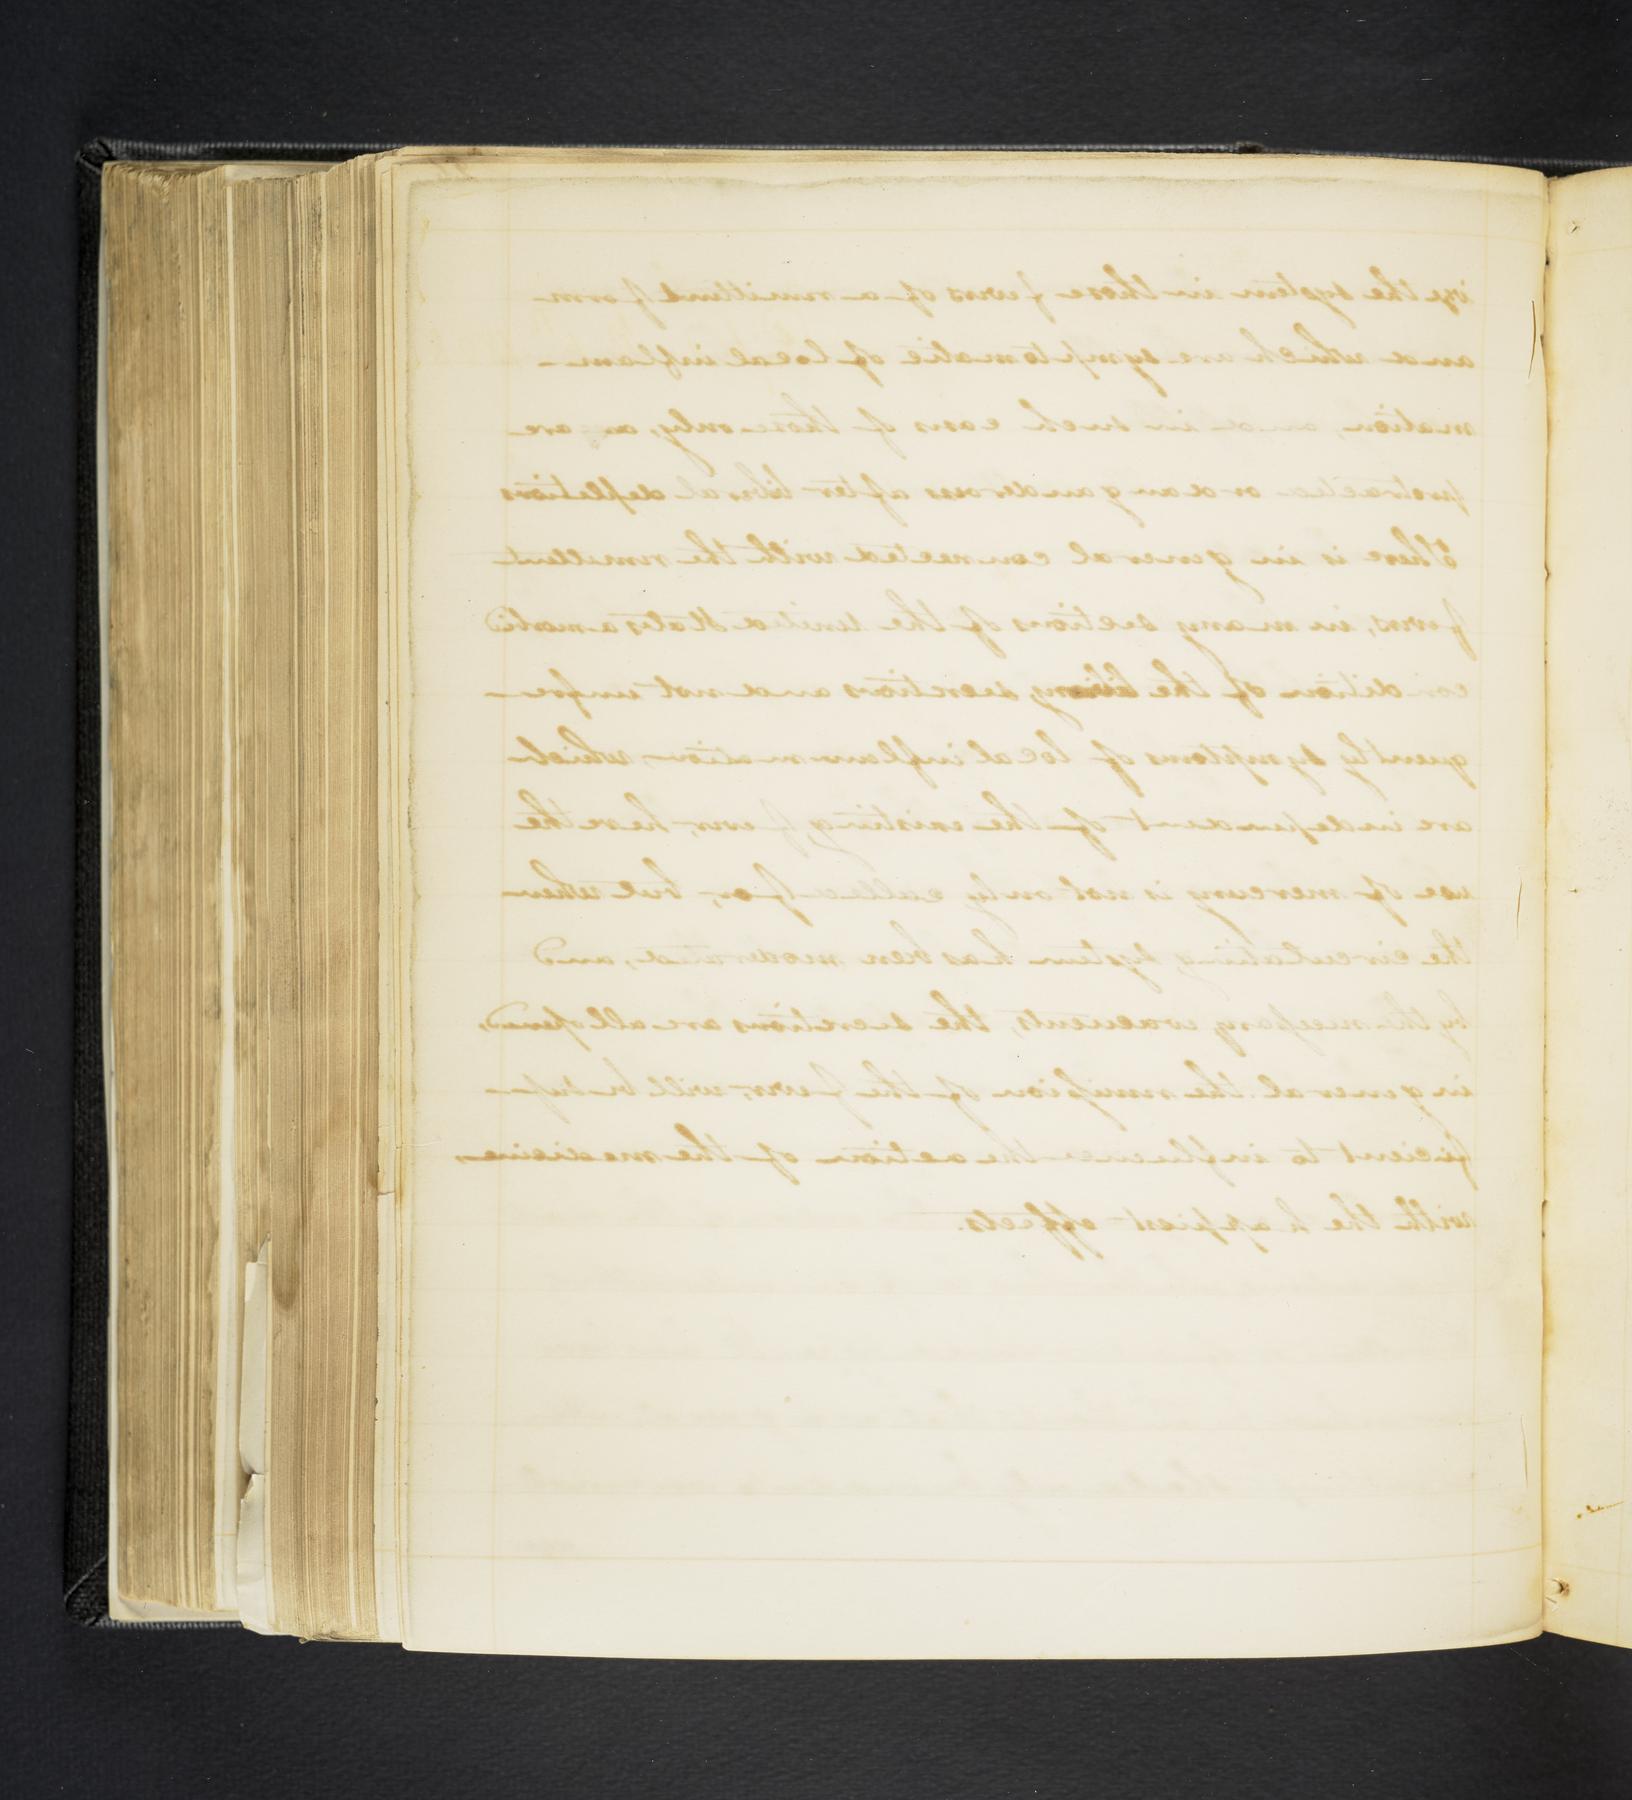 by the system in those fevers of a remittent form
and which are symptomatic of local inflam-
mation, and in such cases of those only, as are
protracted or dangerous after liberal depletions
There is in general connected with the remittent
fevers, in many sections of the United States a morbid
condition of the biliary secretions and not unfre-
quently symptoms of local inflammation, which
are independent of the existing fever, here the
use of mercury is not only called for, but when
the circulating system has been moderated, and
by the necessary evacuents, the secretions are all opened,
in general the remission of the fever, will be suf-
ficient to influence the action of the medicine,
with the happiest effects.